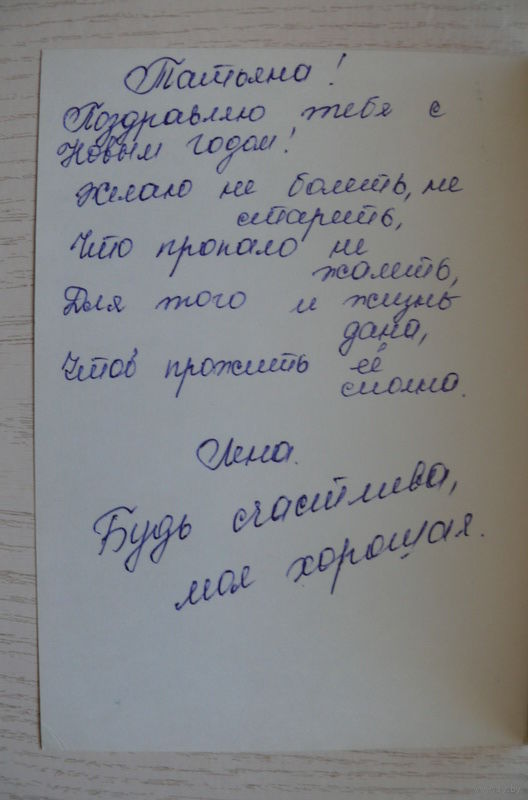 Татьяна!
Поздравляю тебя с
Новым годом!
Желаю не болеть, не
стареть,
Что пропало не
жалеть,
Для того и жизнь
дана,
Чтов прожить её
сполна.
Лена.
Будь счастлива,
моя хорошая.